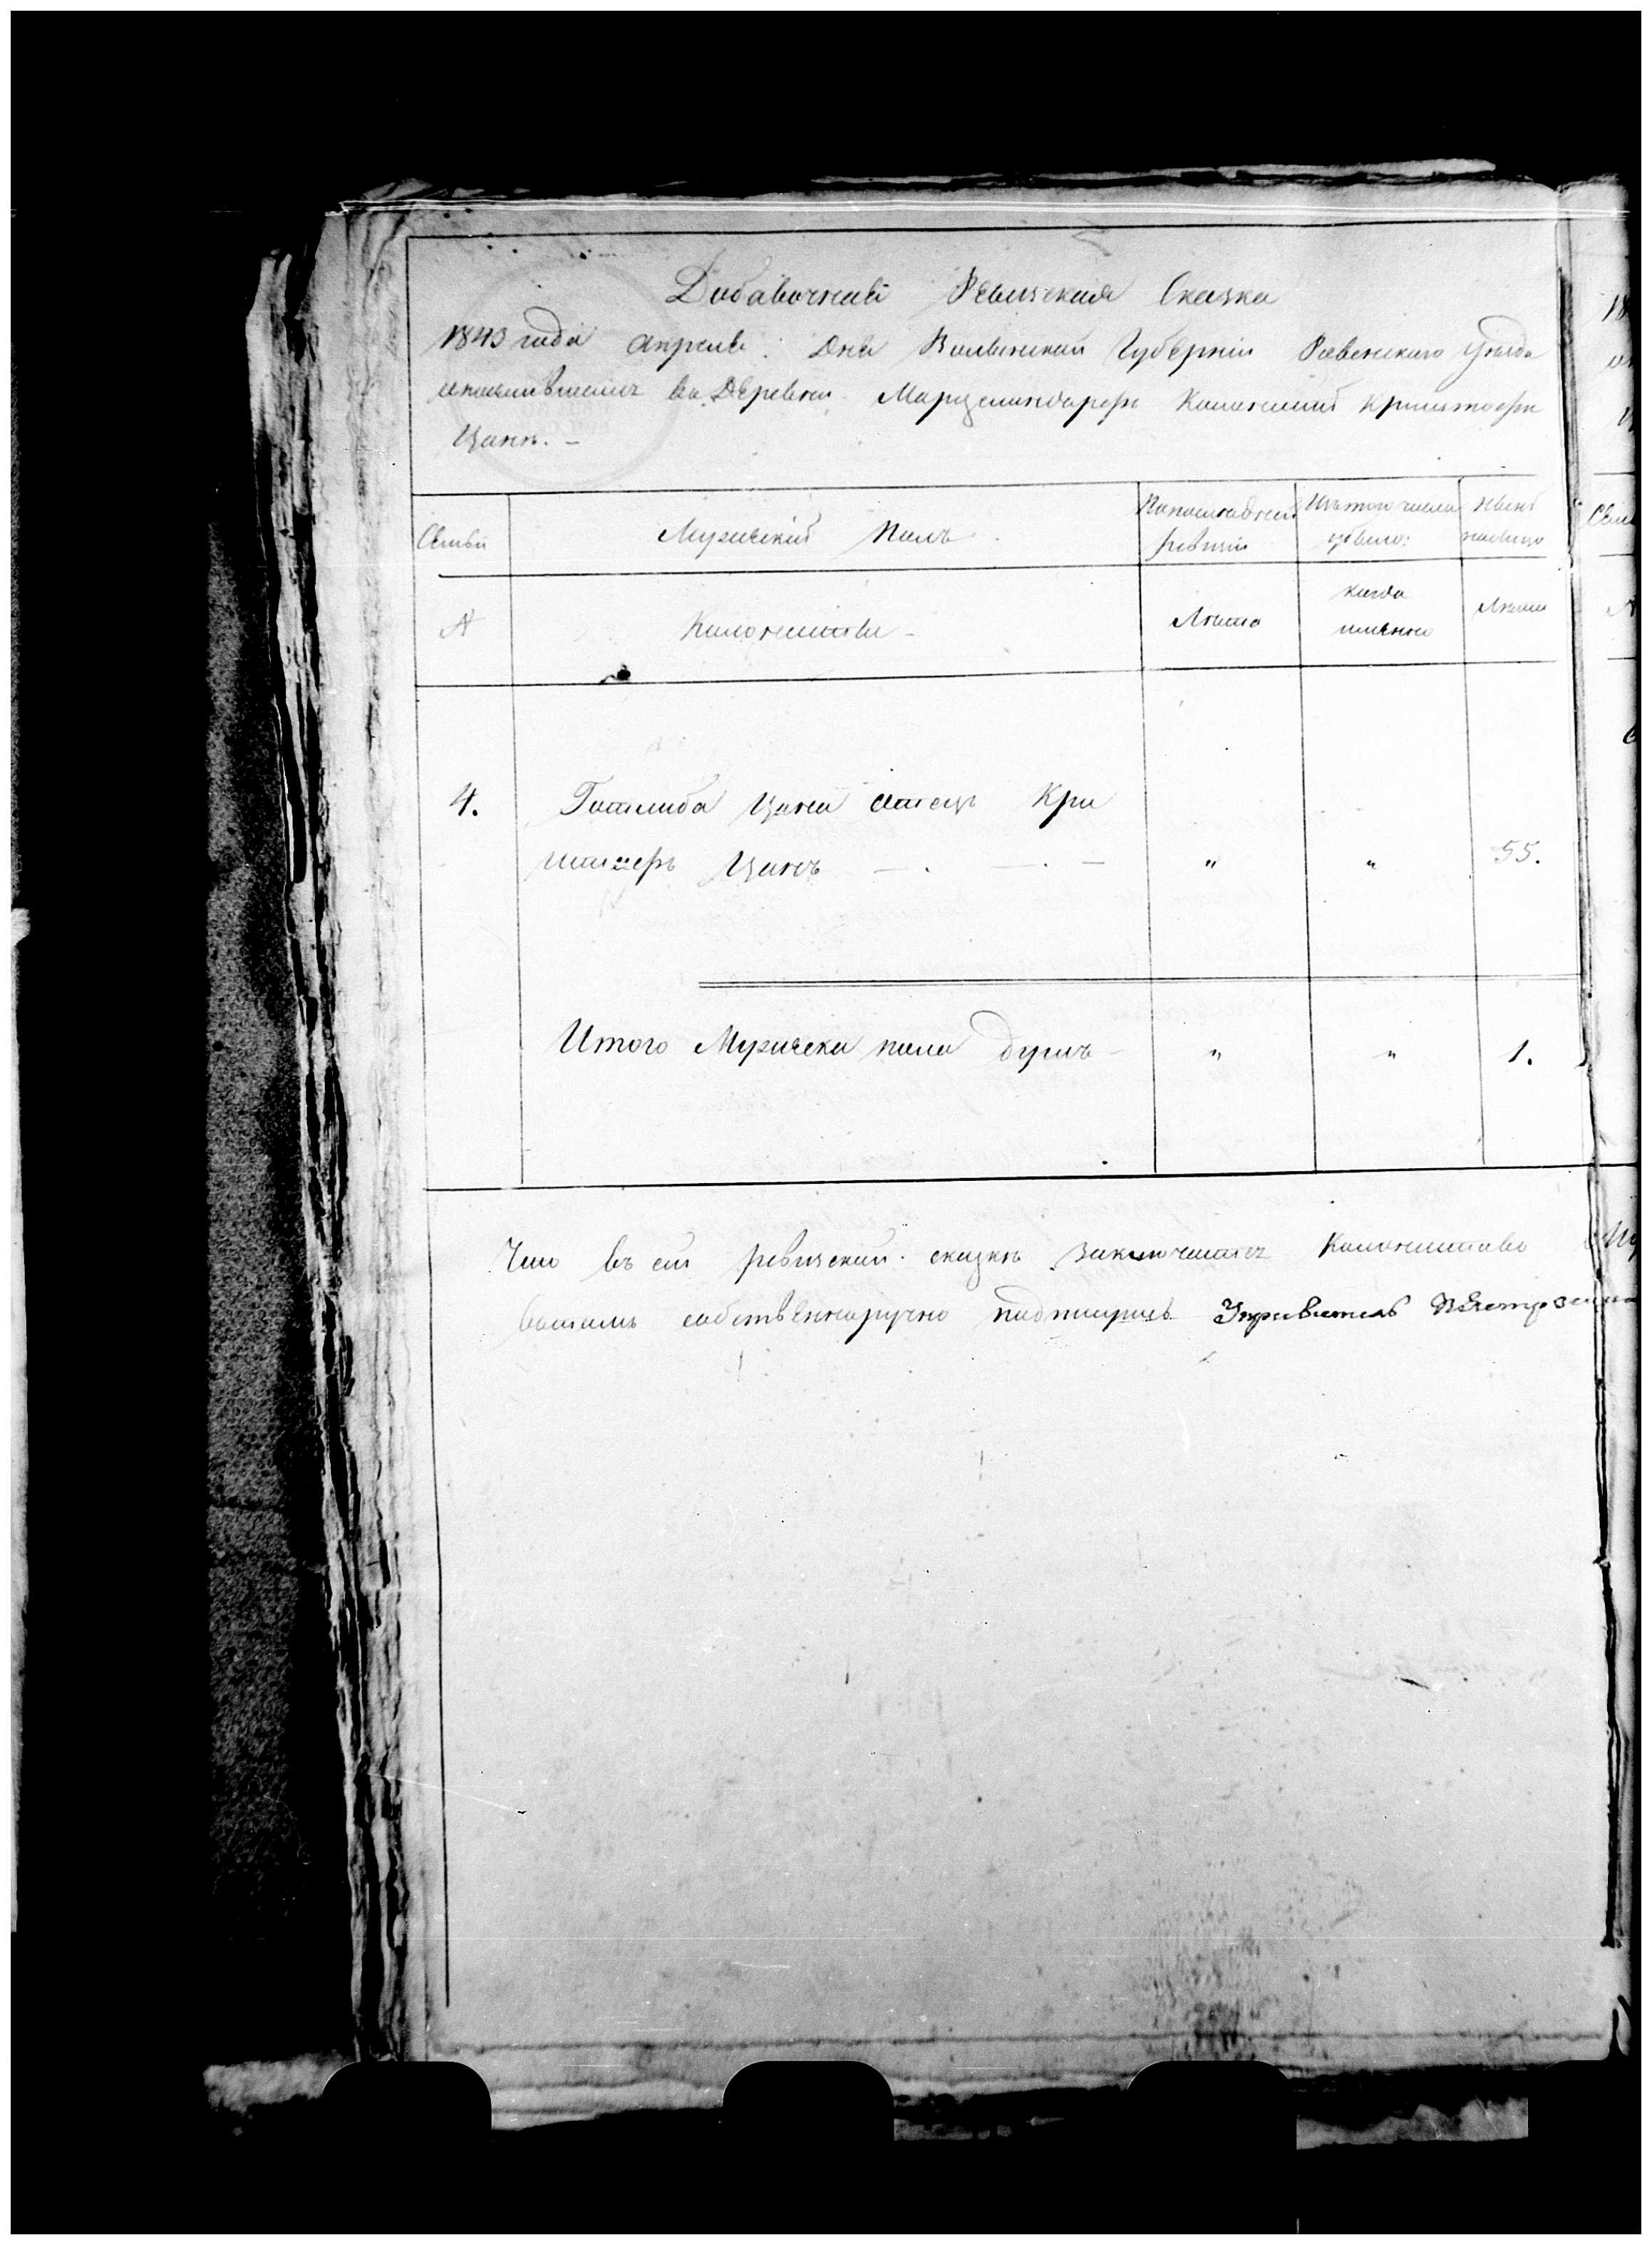 Добавочная Ревизская Сказка
1843 года апреля: Дня Волынской Губерніи Ровенского Уезда
въ Деревни Марцелиндорфъ Колонистъ Криштофъ
Цанъ. –
Семьи
Мужескій Полъ.
По последней ревизіи
Изъ того числа убыло:
Ныне налицо
№
Колонисты –
Лета
когда именно
Лета
4.
Готлиба Цана отецъ Кри
штофъ Цанъ — . — . —
"
"
55.
Итого Мужеска пола душъ –
"
"
1.
Что въ сей ревизской сказке заключается Колонистовъ
собственноручно подпишусь